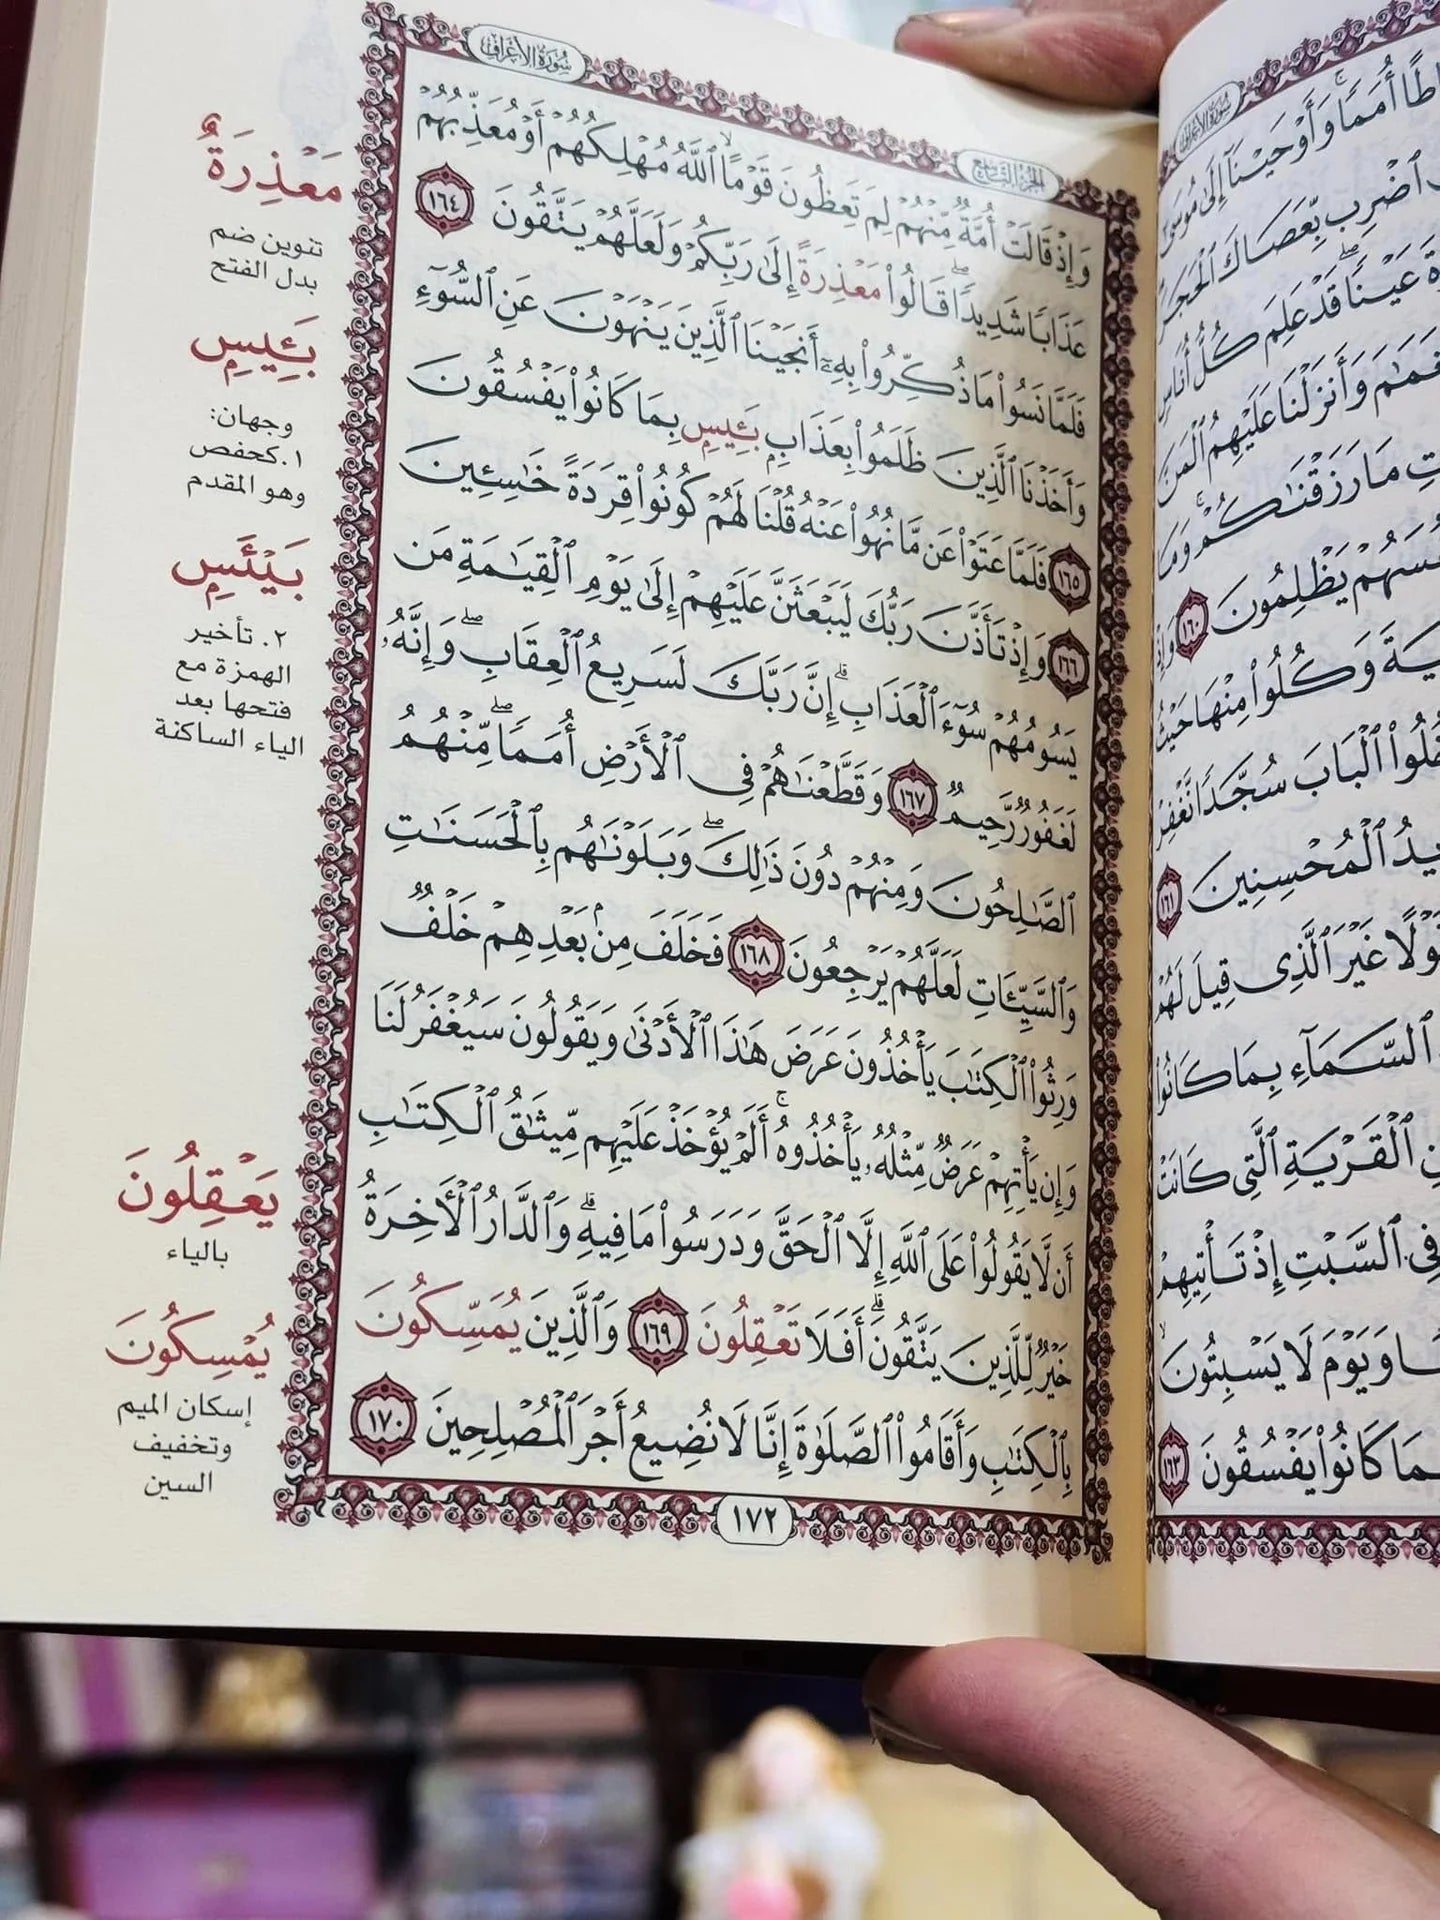 سُورَةُ الأَعْرَافِ
الجُزْءُ التَّاسِعُ
وَإِذْ قَالَتْ أُمَّةٌ مِّنْهُمْ لِمَ تَعِظُونَ قَوْمًا ۙ ٱللَّهُ مُهْلِكُهُمْ أَوْ مُعَذِّبُهُمْ
عَذَابًا شَدِيدًا ۖ قَالُوا۟ مَعْذِرَةً إِلَىٰ رَبِّكُمْ وَلَعَلَّهُمْ يَتَّقُونَ ١٦٤
فَلَمَّا نَسُوا۟ مَا ذُكِّرُوا۟ بِهِۦٓ أَنجَيْنَا ٱلَّذِينَ يَنْهَوْنَ عَنِ ٱلسُّوٓءِ
وَأَخَذْنَا ٱلَّذِينَ ظَلَمُوا۟ بِعَذَابٍۭ بَـِٔيسٍۭ بِمَا كَانُوا۟ يَفْسُقُونَ
١٦٥ فَلَمَّا عَتَوْا۟ عَن مَّا نُهُوا۟ عَنْهُ قُلْنَا لَهُمْ كُونُوا۟ قِرَدَةً خَـٰسِـِٔينَ
١٦٦ وَإِذْ تَأَذَّنَ رَبُّكَ لَيَبْعَثَنَّ عَلَيْهِمْ إِلَىٰ يَوْمِ ٱلْقِيَـٰمَةِ مَن
يَسُومُهُمْ سُوٓءَ ٱلْعَذَابِ ۗ إِنَّ رَبَّكَ لَسَرِيعُ ٱلْعِقَابِ ۖ وَإِنَّهُۥ
لَغَفُورٌ رَّحِيمٌ ١٦٧ وَقَطَّعْنَـٰهُمْ فِى ٱلْأَرْضِ أُمَمًا ۖ مِّنْهُمُ
ٱلصَّـٰلِحُونَ وَمِنْهُمْ دُونَ ذَٰلِكَ ۖ وَبَلَوْنَـٰهُم بِٱلْحَسَنَـٰتِ
وَٱلسَّيِّـَٔاتِ لَعَلَّهُمْ يَرْجِعُونَ ١٦٨ فَخَلَفَ مِنۢ بَعْدِهِمْ خَلْفٌ
وَرِثُوا۟ ٱلْكِتَـٰبَ يَأْخُذُونَ عَرَضَ هَـٰذَا ٱلْأَدْنَىٰ وَيَقُولُونَ سَيُغْفَرُ لَنَا
وَإِن يَأْتِهِمْ عَرَضٌ مِّثْلُهُۥ يَأْخُذُوهُ ۚ أَلَمْ يُؤْخَذْ عَلَيْهِم مِّيثَـٰقُ ٱلْكِتَـٰبِ
أَن لَّا يَقُولُوا۟ عَلَى ٱللَّهِ إِلَّا ٱلْحَقَّ وَدَرَسُوا۟ مَا فِيهِ ۗ وَٱلدَّارُ ٱلْـَٔاخِرَةُ
خَيْرٌ لِّلَّذِينَ يَتَّقُونَ ۗ أَفَلَا تَعْقِلُونَ ١٦٩ وَٱلَّذِينَ يُمَسِّكُونَ
بِٱلْكِتَـٰبِ وَأَقَامُوا۟ ٱلصَّلَوٰةَ إِنَّا لَا نُضِيعُ أَجْرَ ٱلْمُصْلِحِينَ ١٧٠
١٧٢
مَعْذِرَةٌ
تنوين ضم
بدل الفتح
بَـِٔيسٍ
وجهان:
١. كحفص
وهو المقدم
بَيْـَٔسٍ
٢. تأخير
الهمزة مع
فتحها بعد
الياء الساكنة
يَعْقِلُونَ
بالياء
يُمْسِكُونَ
إسكان الميم
وتخفيف
السين
سُورَةُ الأَعْرَافِ
أُمَمًا ۚ وَأَوْحَيْنَآ إِلَىٰ مُوسَىٰٓ
ٱضْرِب بِّعَصَاكَ ٱلْحَجَرَ
عَيْنًا ۖ قَدْ عَلِمَ كُلُّ أُنَاسٍ
وَأَنزَلْنَا عَلَيْهِمُ ٱلْمَنَّ
مَا رَزَقْنَـٰكُمْ ۚ وَمَا
يَظْلِمُونَ ١٦٠ وَإِذْ
وَكُلُوا۟ مِنْهَا حَيْثُ
ٱلْبَابَ سُجَّدًا نَّغْفِرْ
ٱلْمُحْسِنِينَ ١٦١
غَيْرَ ٱلَّذِى قِيلَ لَهُمْ
ٱلسَّمَآءِ بِمَا كَانُوا۟
ٱلْقَرْيَةِ ٱلَّتِى كَانَتْ
فِى ٱلسَّبْتِ إِذْ تَأْتِيهِمْ
وَيَوْمَ لَا يَسْبِتُونَ ۙ
كَانُوا۟ يَفْسُقُونَ ١٦٣